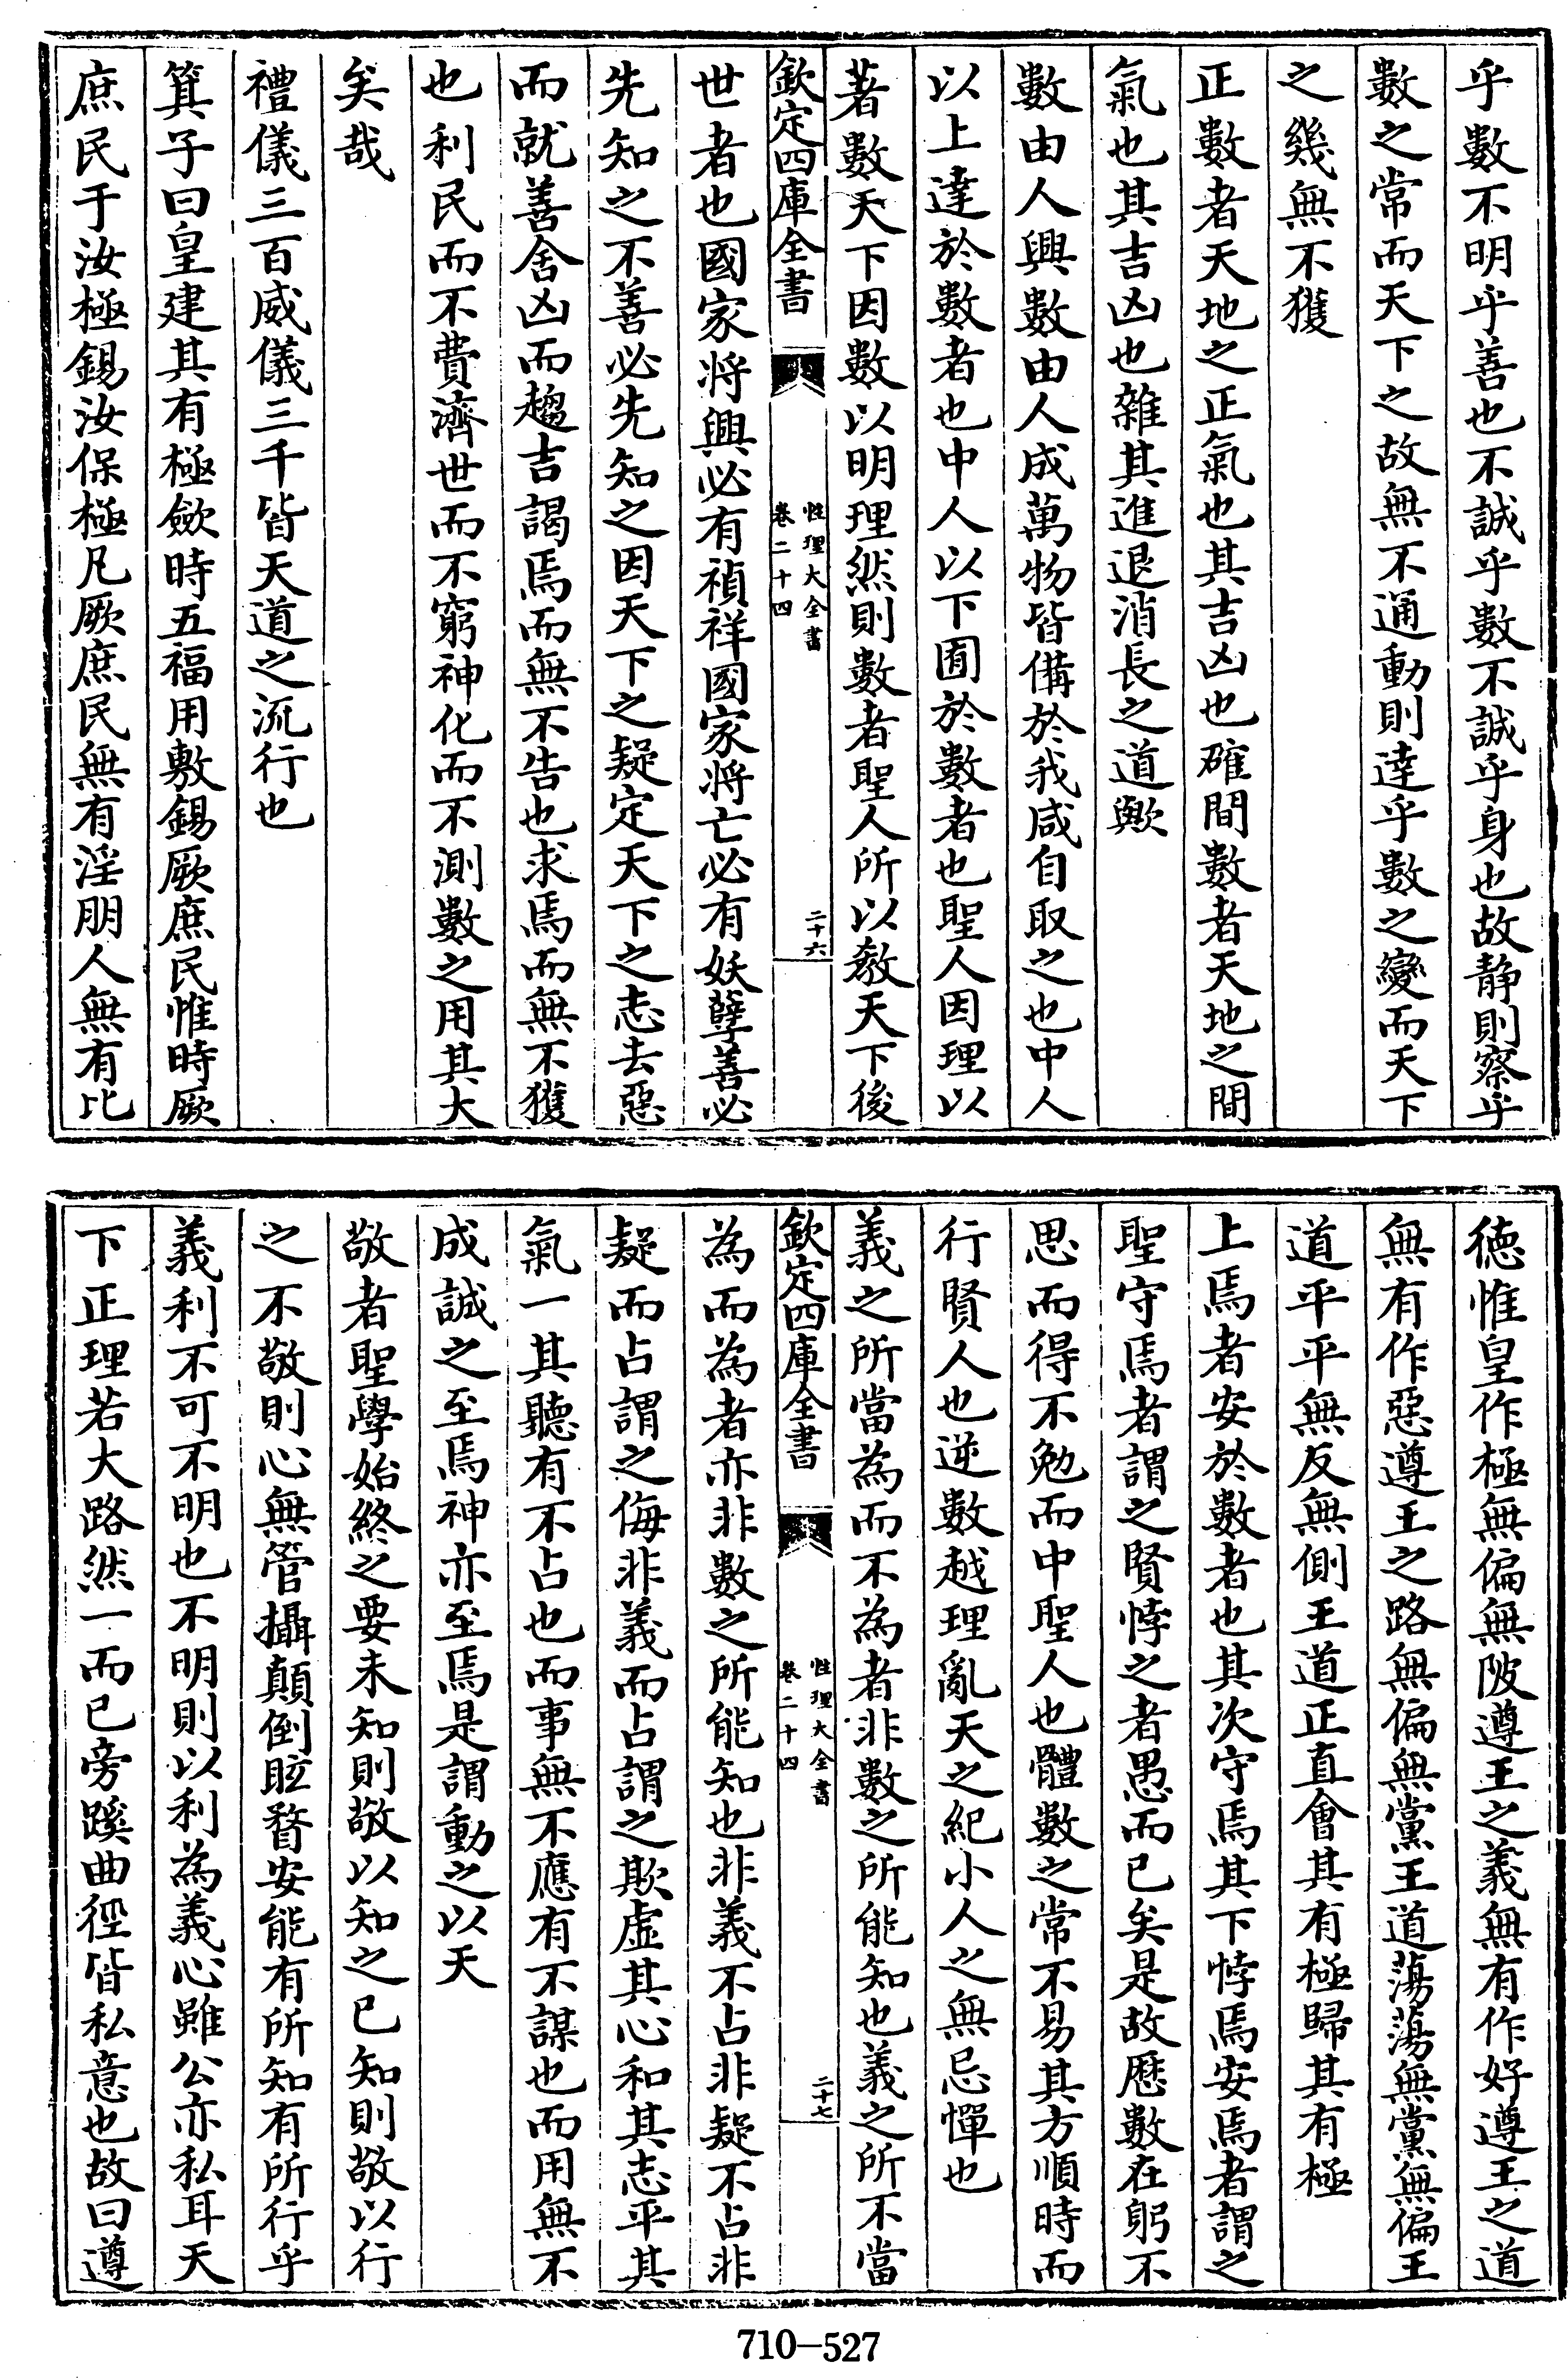 乎數不明乎善也不誠乎數不誠乎身也故静則察乎
數之常而天下之故無不通動則逹乎數之變而天下
之幾無不獲
正數者天地之正氣也其吉凶也確間數者天地之間
氣也其吉凶也雜其進退消長之道歟
數由人興數由人成萬物皆備於我咸自取之也中人
以上達於數者也中人以下囿於數者也聖人因理以
著數天下因數以明理然則數者聖人所以教天下後
欽定四庫全書
性理大全書
卷二十四
二十六
世者也國家将興必有禎祥國家将亡必有妖孽善必
先知之不善必先知之因天下之疑定天下之志去惡
而就善舍凶而趨吉謁焉而無不告也求焉而無不獲
也利民而不費濟世而不窮神化而不測數之用其大
矣哉
禮儀三百威儀三千皆天道之流行也
箕子曰皇建其有極歛時五福用敷錫厥庶民惟時厥
庶民于汝極錫汝保極凡厥庶民無有淫朋人無有比
德惟皇作極無偏無陂遵王之義無有作好遵王之道
無有作惡遵王之路無偏無黨王道蕩蕩無黨無偏王
道平平無反無側王道正直會其有極歸其有極
上焉者安於數者也其次守焉其下悖焉安焉者謂之
聖守焉者謂之賢悖之者愚而已矣是故厯數在躬不
思而得不勉而中聖人也體數之常不易其方順時而
行賢人也逆數越理亂天之紀小人之無忌憚也
義之所當為而不為者非數之所能知也義之所不當
欽定四庫全書
性理大全書
卷二十四
二十七
為而為者亦非數之所能知也非義不占非疑不占非
疑而占謂之侮非義而占謂之欺虚其心和其志平其
氣一其聽有不占也而事無不應有不謀也而用無不
成誠之至焉神亦至焉是謂動之以天
敬者聖學始終之要未知則敬以知之已知則敬以行
之不敬則心無管攝顛倒眩瞀安能有所知有所行乎
義利不可不明也不明則以利為義心雖公亦私耳天
下正理若大路然一而已旁蹊曲徑皆私意也故曰遵
710-527